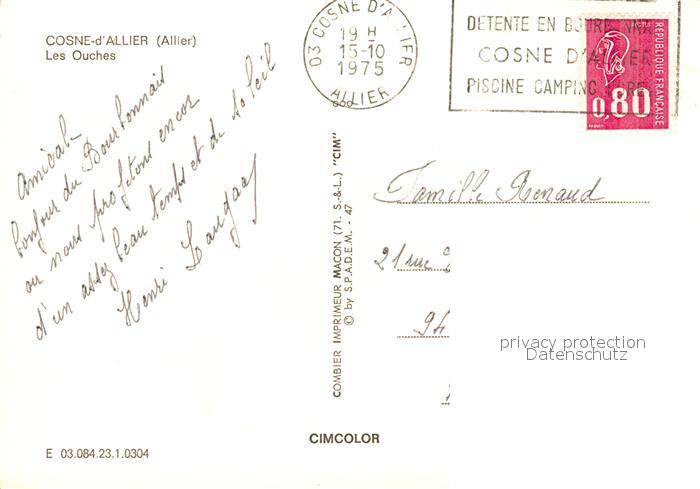 COSNE-d'ALLIER (Allier)
Les Ouches
Amical
bonjour du Bourbonnais
ou nous profitons encor
d'un assez beau temps et de soleil
Henri
03 COSNE D'ALLIER
19 H
15-10
1975
ALLIER
DETENTE EN
COSNE D'ALLIER
PISCINE CAMPING
REPUBLIQUE FRANÇAISE
0,80
COMBIER IMPRIMEUR MACON (71. S.-&-L.) "CIM"
© by S.P.A.D.E.M. - 47
Famille Renaud
21 rue
94
privacy protection
Datenschutz
CIMCOLOR
E 03.084.23.1.0304